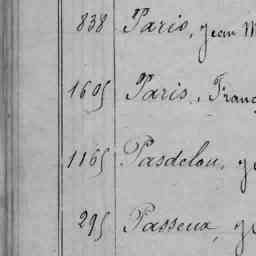 838 Paris, Jean M
1605 Paris, Franç
1165 Pasdelou, J
295 Passeux, J